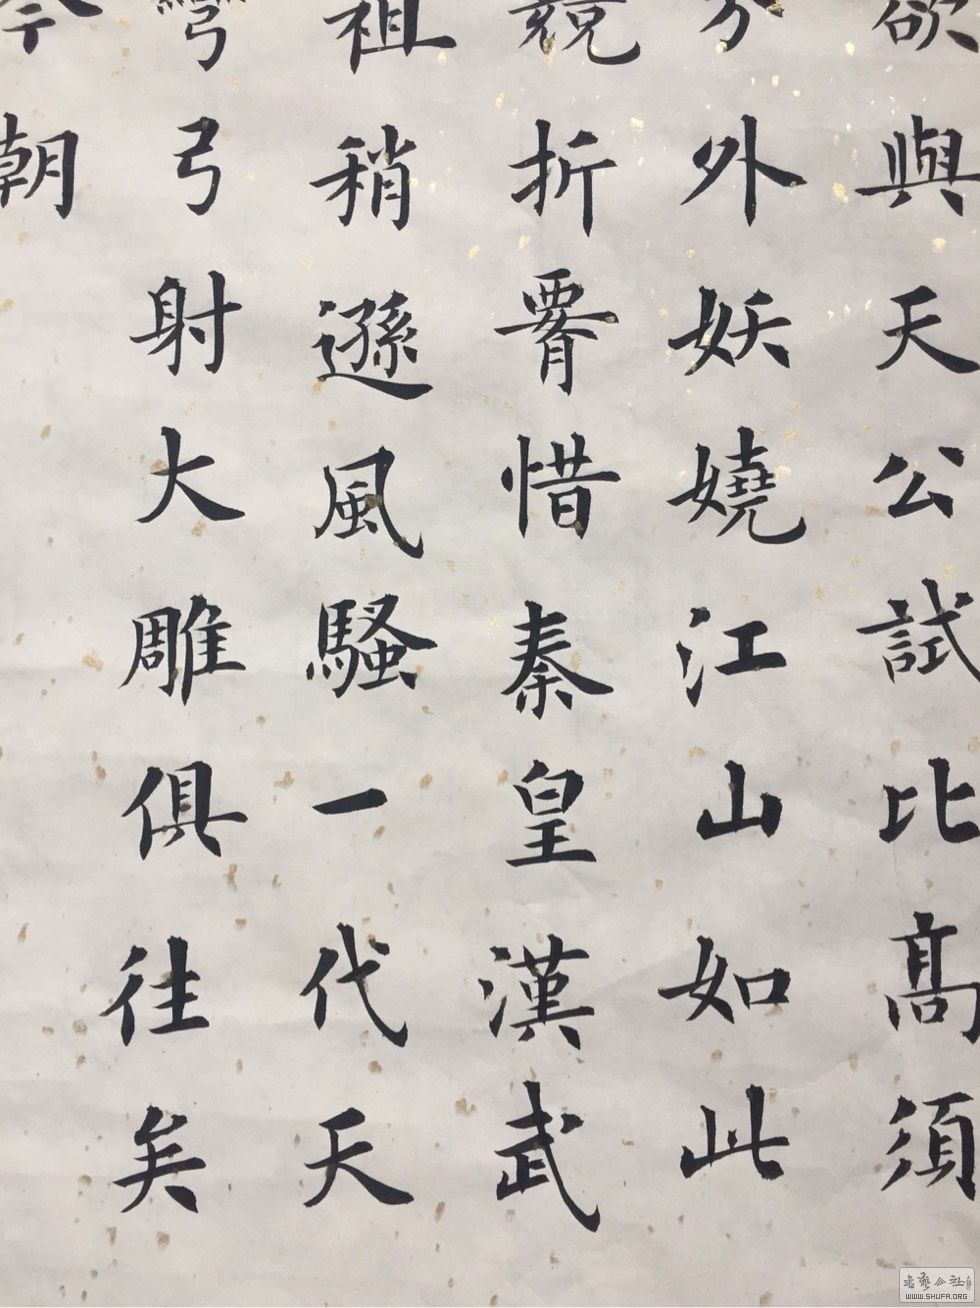 欲與天公試比髙須
分外妖嬈江山如此
競折腰惜秦皇漢武
祖稍遜風騷一代天
彎弓射大雕俱往矣
今朝
書藝公社
WWW.SHUFA.ORG